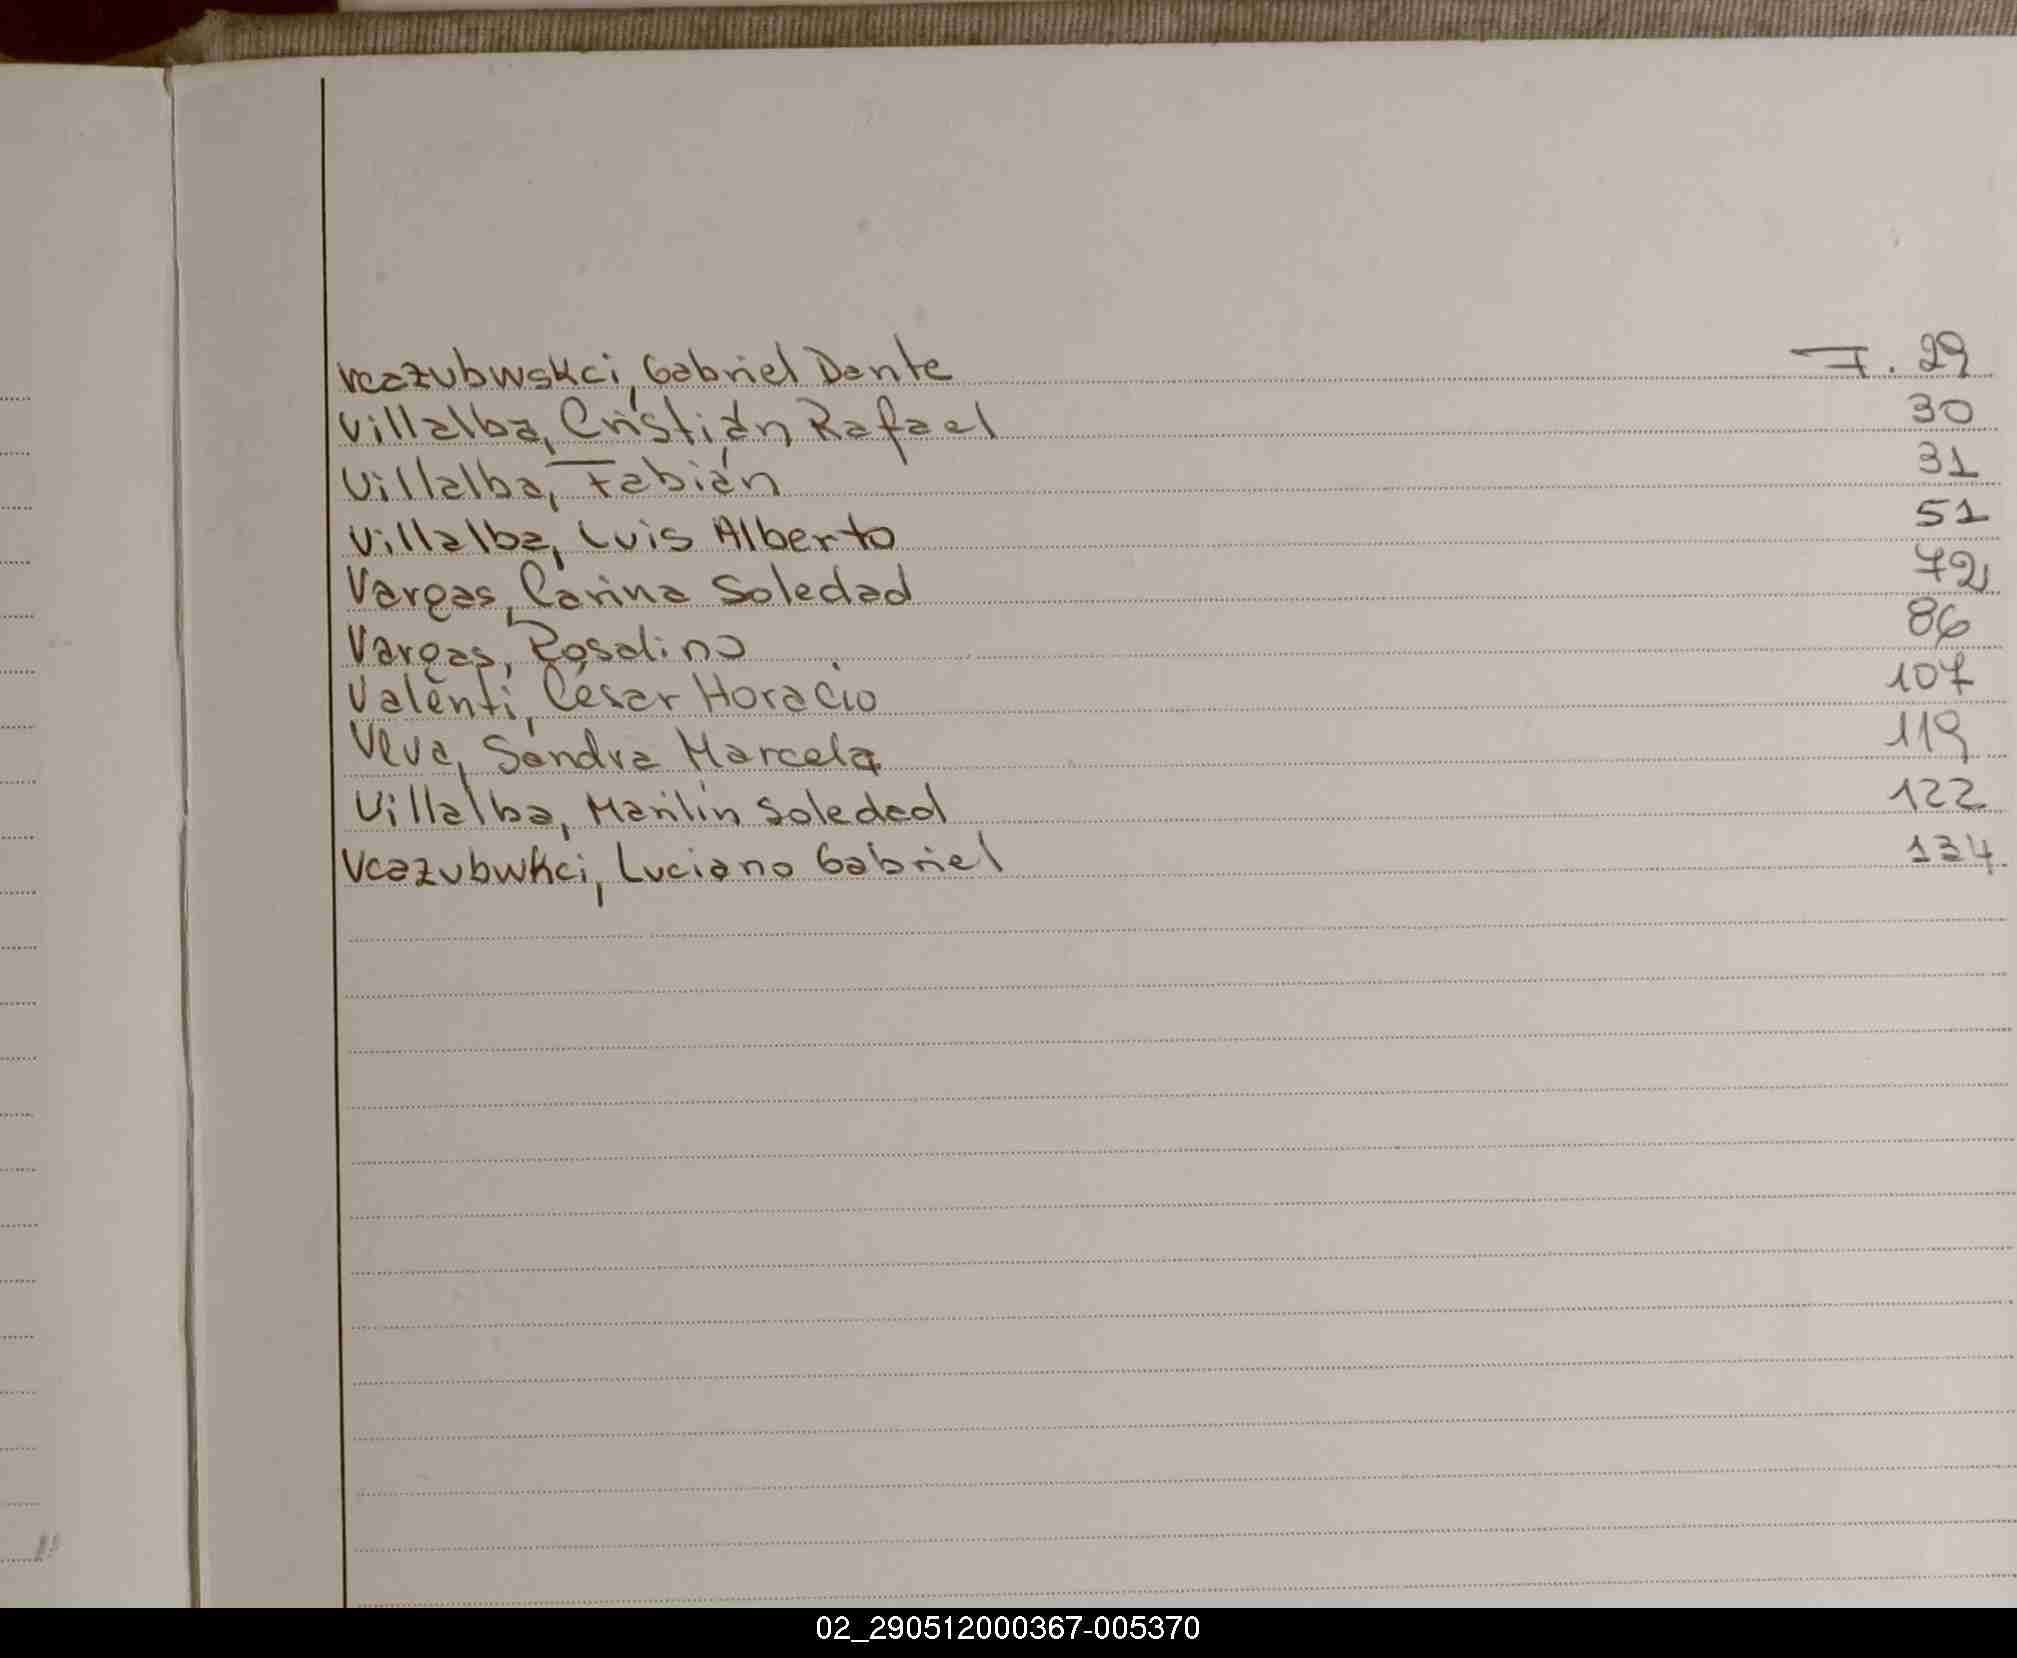 Vcazubwskci, Gabriel Dante F. 29
Villalba, Cristián Rafael 30
Villalba, Fabián 31
Villalba, Luis Alberto 51
Vargas, Carina Soledad 72
Vargas, Rosalino 86
Valenti, César Horacio 107
Veva, Sandra Marcela 119
Villalba, Marilin Soledad 122
Vcazubwkci, Luciano Gabriel 134
02_290512000367-005370